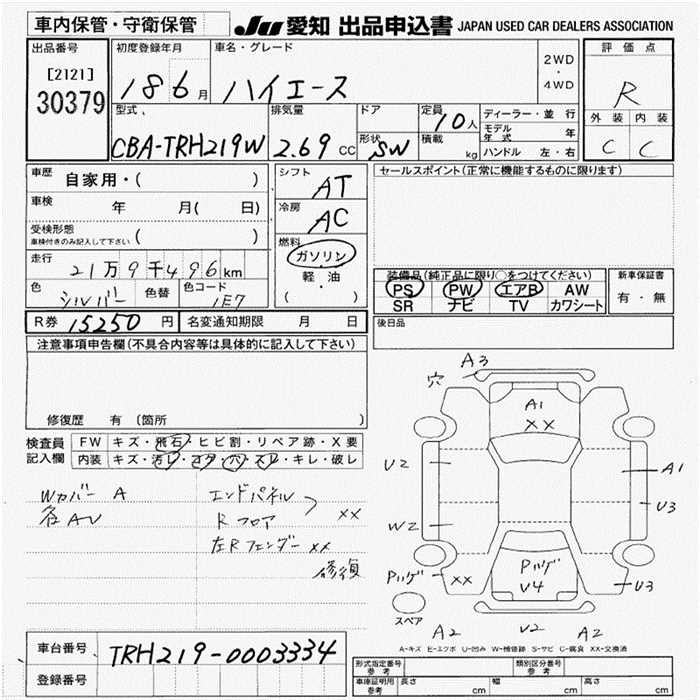 車内保管・守衛保管
JU 愛知 出品申込書 JAPAN USED CAR DEALERS ASSOCIATION
出品番号 初度登録年月 車名・グレード 評価点
[2121] 2WD・4WD
30379 18 6月 ハイエース R
型式 排気量 ドア 定員 10人 ディーラー・並行 外装 内装
モデル年式 年
CBA-TRH219W 2.69 CC 形状 SW 積載 kg ハンドル 左・右 C C
車歴 自家用・( ) シフト AT セールスポイント(正常に機能するものに限ります)
車検 年 月(日) 冷房 AC
受検形態 ( )
車検付きのみ記入して下さい
燃料 ガソリン・軽・油 ( )
走行 21万9千496km
装備品(純正品に限り○をつけてください) 新車保証書
色 シルバー 色替 色コード 1E7
PS PW エアB AW 有・無
SR ナビ TV カワシート
R券 15250円 名変通知期限 月 日 後日品
注意事項申告欄(不具合内容等は具体的に記入して下さい)
修復歴 有 (箇所 )
検査員記入欄 FW キズ・飛石・ヒビ割・リペア跡・X要
内装 キズ・汚レ・コゲ・穴・スレ・キレ・破レ
Wカバー A エンドパネル
各AU Rフロア XX
左Rフェンダー XX
修復
A3
穴
A1
XX
U2 A1
U3
W2
Pハゲ XX Pハゲ
V4 U3
スペア
A2 U2 A2
A-キズ E-エクボ U-凹み W-補修跡 S-サビ C-腐食 XX-交換済
車台番号 TRH219-0003334
登録番号
形式指定番号 参考 類別区分番号 参考
車庫証明用 参考 長さ cm 幅 cm 高さ cm